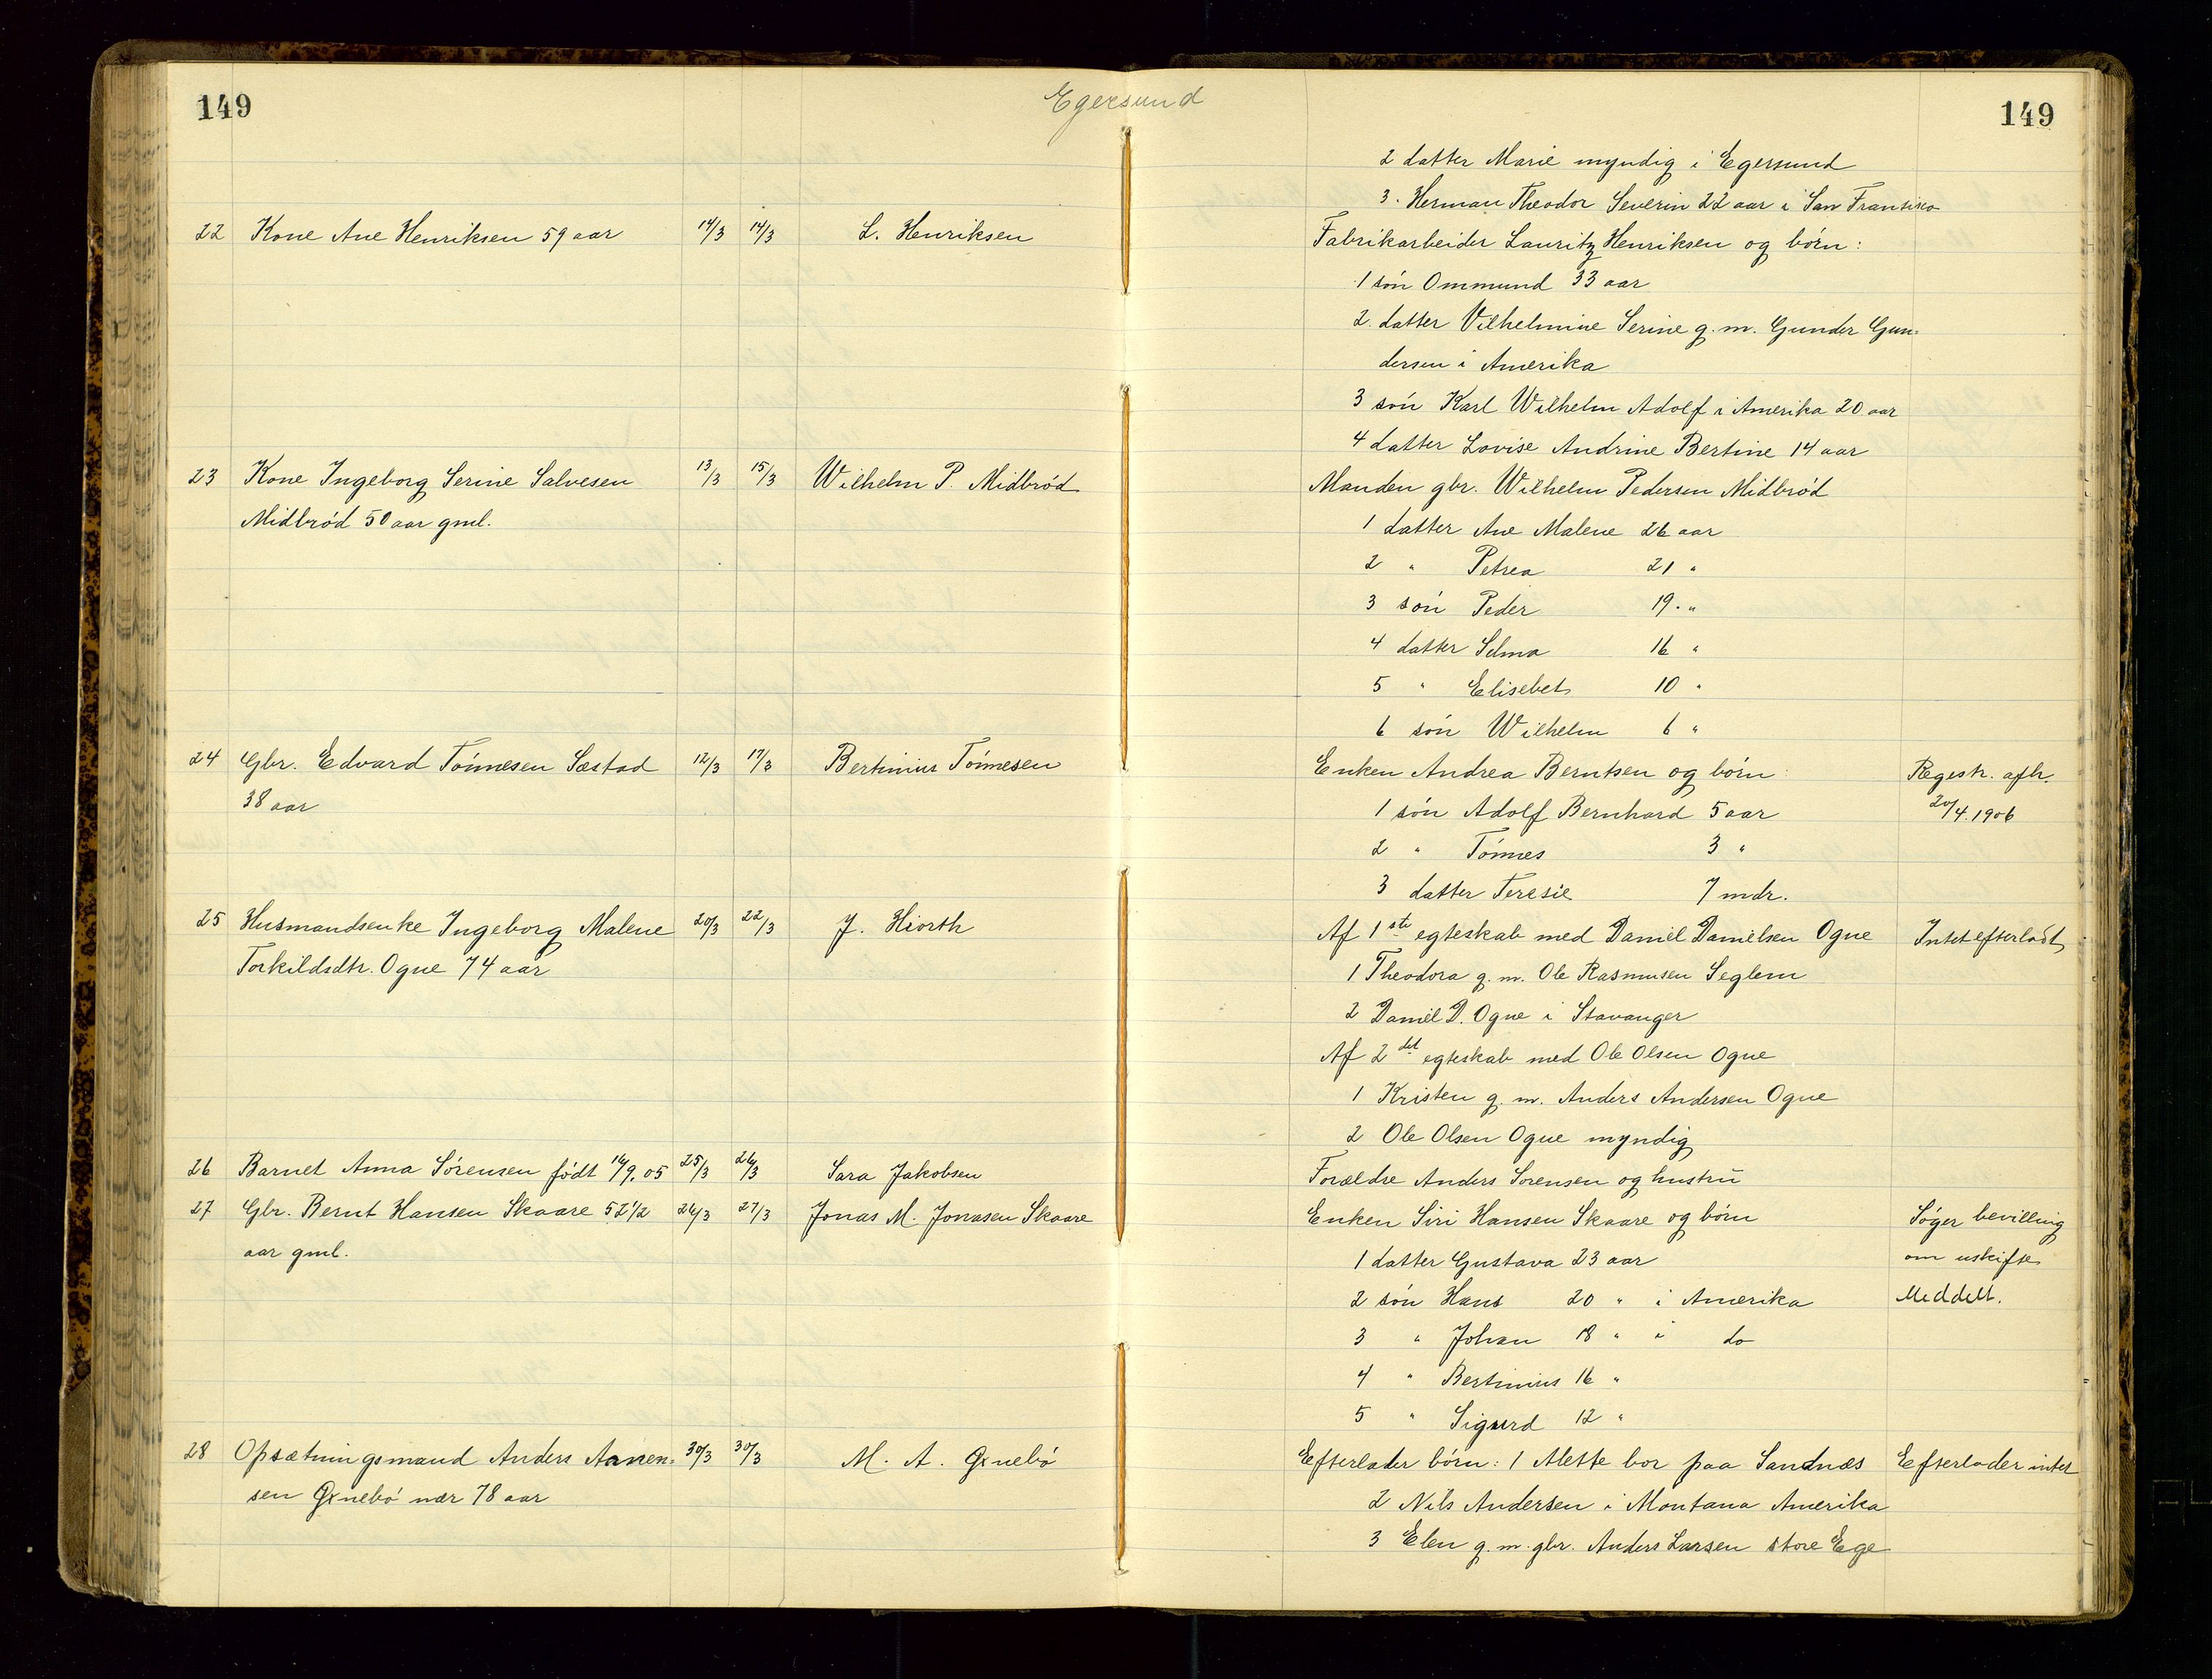 149
Egersund
149
2 datter Marie myndig i Egersund
3. Herman Theodor Severin 22 aar i San Fransisco
22 Kone Ane Henriksen 59 aar 14/3 14/3 L. Henriksen Fabrikarbeider Lauritz Henriksen og börn:
1 sön Ommund 33 aar
2. datter Vilhelmine Serine g. m. Gunder Gun=
dersen i Amerika
3 sön Karl Wilhelm Adolf i Amerika 20 aar
4 datter Lovise Andrine Bertine 14 aar
23 Kone Ingeborg Serine Salvesen 13/3 15/3 Wilhelm P. Midbröd Manden gbr. Wilhelm Pedersen Midbröd
Midbröd 50 aar gml.
1 datter Ane Malene 26 aar
2 " Petrea 21 "
3 sön Peder 19. "
4 datter Selma 16 "
5 " Elisebet 10 "
6 sön Wilhelm 6 "
24 Gbr. Edvard Tönnesen Sæstad 12/3 17/3 Bertinius Tönnesen Enken Andrea Berntsen og börn: Regestr. afh.
38 aar 1 sön Adolf Bernhard 5 aar 20/4. 1906
2 " Tönnes 3 "
3 datter Teresie 7 mdr.
25 Husmandsenke Ingeborg Malene 20/3 22/3 J. Hiorth Af 1ste egteskab med Daniel Danielsen Ogne Intet efterladt
Torkildsdtr. Ogne 74 aar 1 Theodora g. m. Ole Rasmusen Seglem
2 Daniel D. Ogne i Stavanger
Af 2det egteskab med Ole Olsen Ogne
1 Kristen g. m. Anders Andersen Ogne
2 Ole Olsen Ogne myndig
26 Barnet Anna Sörensen födt 14/9. 05 25/3 26/3 Sara Jakobsen Forældre Anders Sorensen og hustru
27 Gbr. Bernt Hansen Skaare 52 1/2 26/3 27/3 Jonas M. Jonasen Skaare Enken Siri Hansen Skaare og börn Söger bevilling
aar gml. 1 datter Gustava 23 aar om uskifte
2 sön Hans 20 " i Amerika Meddelt.
3 " Johan 18 " i do
4 " Bertinius 16 "
5 " Sigurd 12 "
28 Opsætningsmand Anders Aanen= 30/3 30/3 M. A. Gxnebö Efterlader börn: 1 Mette bor paa Sandnæs Efterlader intet
sen Gxnebö nær 78 aar 2 Nils Andersen i Montana Amerika
3 Elen g. m. gbr. Anders Larsen store Ege